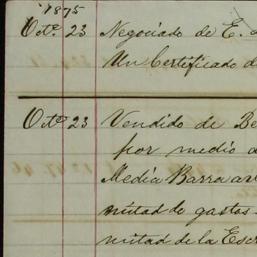 1875
Oct.e 23 Negociado de E.
Un Certificado d
Oct.e 23 Vendido de Be
por medio d
Media Barra
mitad de gastos
mitad de la Escr